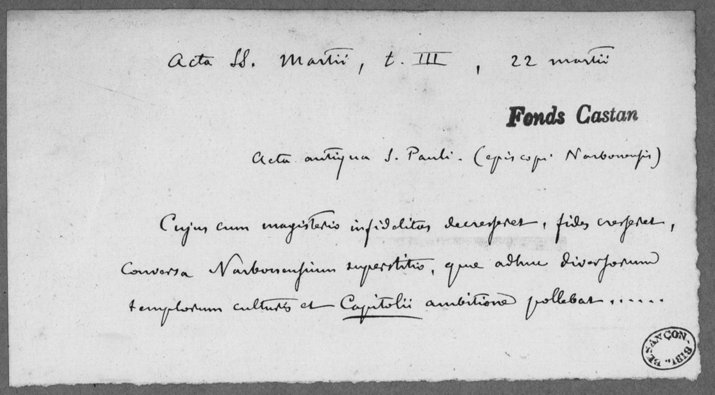 Acta SS. Martii, t. III, 22 martii
Fonds Castan
Acta antiqua S. Pauli. (episcopi Narbonensis)
Cujus cum magisterio infidelitas decresseret, fides cresseret,
conversa Narbonensium superstitio, quae adhuc diversorum
templorum culturis et Capitolii ambitione pollebat......
BESANÇON - BIBL.